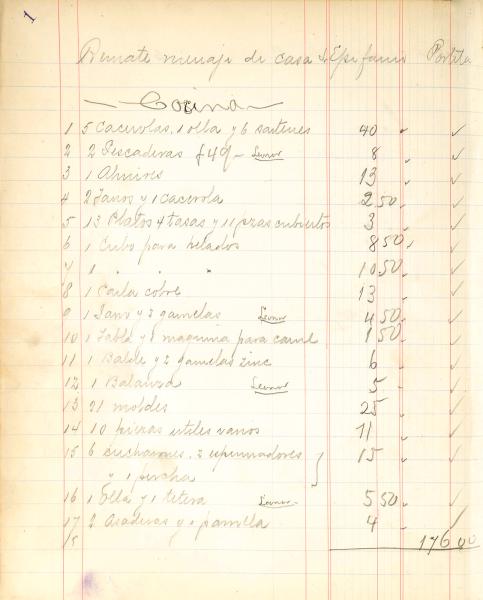 1
Remate menaje de casa de Epifanio Portela
Cocina
1 5 Cacerolas, 1 olla y 6 sartenes 40
2 2 Pescaderas f 49 - Leonor 8
3 1 Almires 13
4 2 Jarros y 1 cacerola 2 50
5 13 Platos 4 tasas y 11 pzas cubiertos 3
6 1 Cubo para helados 8 50
7 1 " " " 10 50
8 1 Paila cobre 13
9 1 Jarro y 2 gamelas Leonor 4 50
10 1 Tabla y 1 maquina para carne 1 50
11 1 Balde y 2 gamelas zinc 6
12 1 Balanza Leonor 5
13 21 moldes 25
14 10 piezas utiles varios 11
15 6 cucharones, 2 espumadores 15
" 1 percha
16 1 Olla y 1 tetera Leonor 5 50
17 2 Asaderas y 1 parrilla 4
176 00